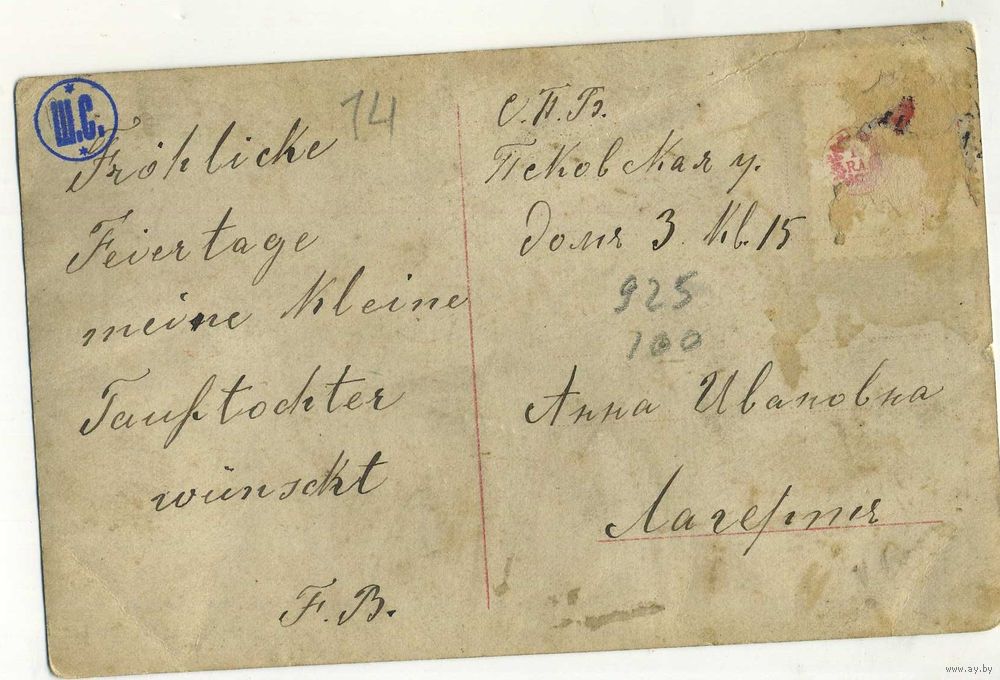 Ш.С.
14
Fröhliche
Feiertage
meine kleine
Tauftochter
wünscht
F. B.
С.П.Б.
Псковская у.
домъ 3. Кв. 15
925
100
Анна Ивановна
www.ay.by